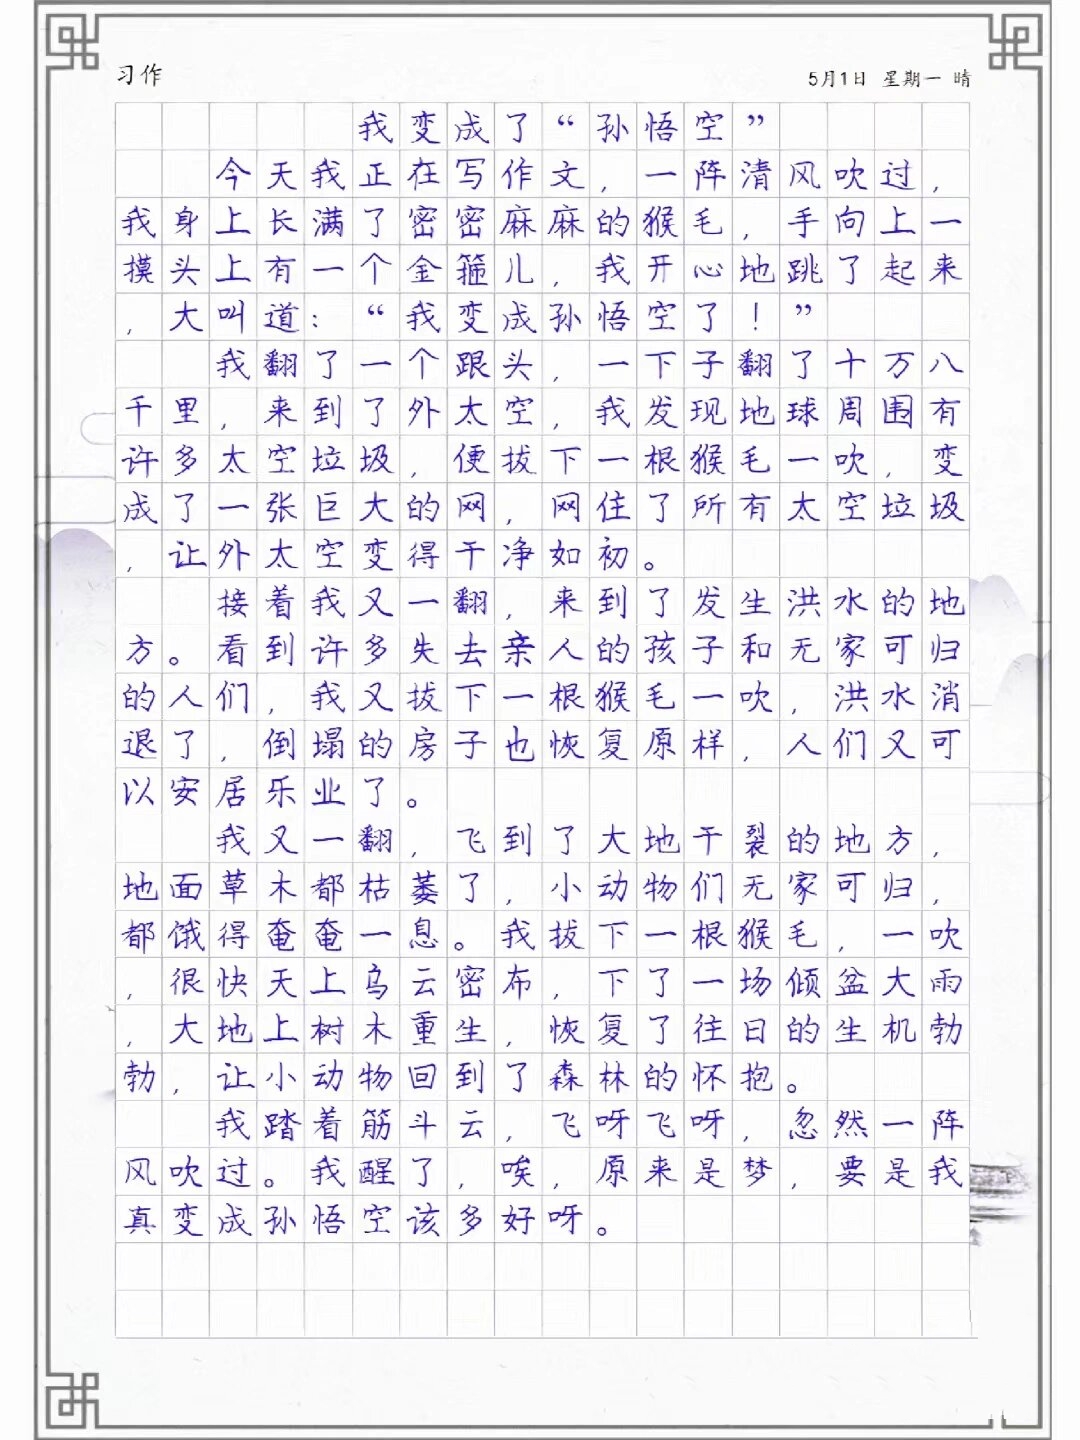 习作
5月1日 星期一 晴
我变成了“孙悟空”
今天我正在写作文，一阵清风吹过，
我身上长满了密密麻麻的猴毛，手向上一
摸头上有一个金箍儿，我开心地跳了起来
，大叫道：“我变成孙悟空了！”
我翻了一个跟头，一下子翻了十万八
千里，来到了外太空，我发现地球周围有
许多太空垃圾，便拔下一根猴毛一吹，变
成了一张巨大的网，网住了所有太空垃圾
，让外太空变得干净如初。
接着我又一翻，来到了发生洪水的地
方。看到许多失去亲人的孩子和无家可归
的人们，我又拔下一根猴毛一吹，洪水消
退了，倒塌的房子也恢复原样，人们又可
以安居乐业了。
我又一翻，飞到了大地干裂的地方，
地面草木都枯萎了，小动物们无家可归，
都饿得奄奄一息。我拔下一根猴毛，一吹
，很快天上乌云密布，下了一场倾盆大雨
，大地上树木重生，恢复了往日的生机勃
勃，让小动物回到了森林的怀抱。
我踏着筋斗云，飞呀飞呀，忽然一阵
风吹过。我醒了，唉，原来是梦，要是我
真变成孙悟空该多好呀。